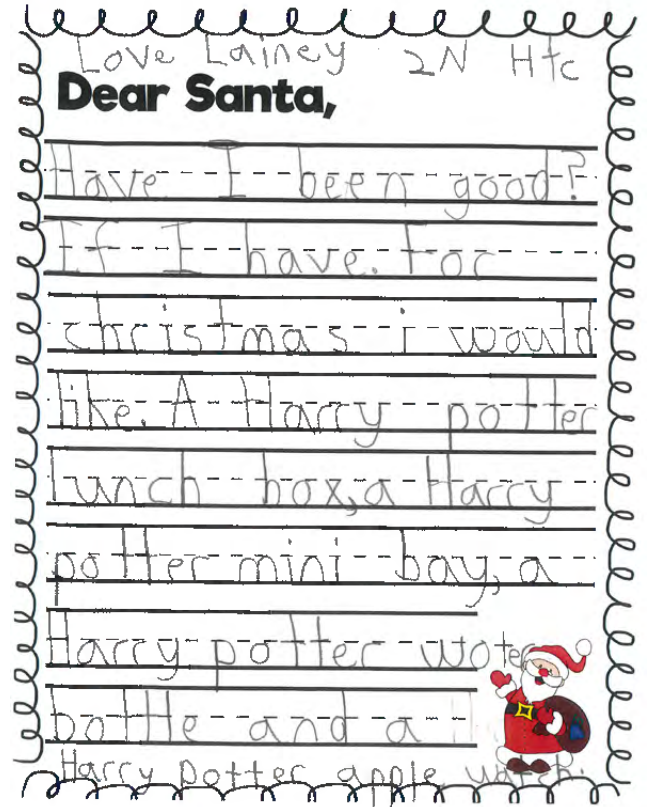 Love Lainey 2N Htc
Dear Santa,
Have I been good?
If I have. For
christmas i would
like. A Harry potter
lunch box, a Harry
potter mini bay, a
Harry potter water
bottle and a
Harry Potter apple watch.